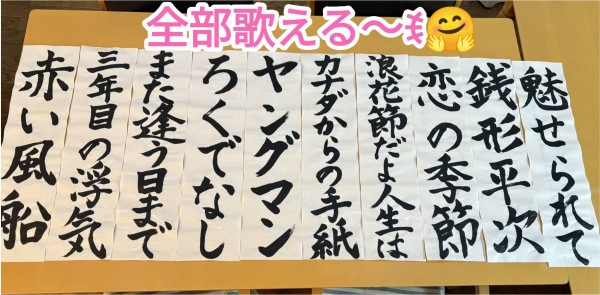 全部歌える〜🎶🤗
魅せられて
銭形平次
恋の季節
浪花節だよ人生は
カナダからの手紙
ヤングマン
ろくでなし
また逢う日まで
三年目の浮気
赤い風船